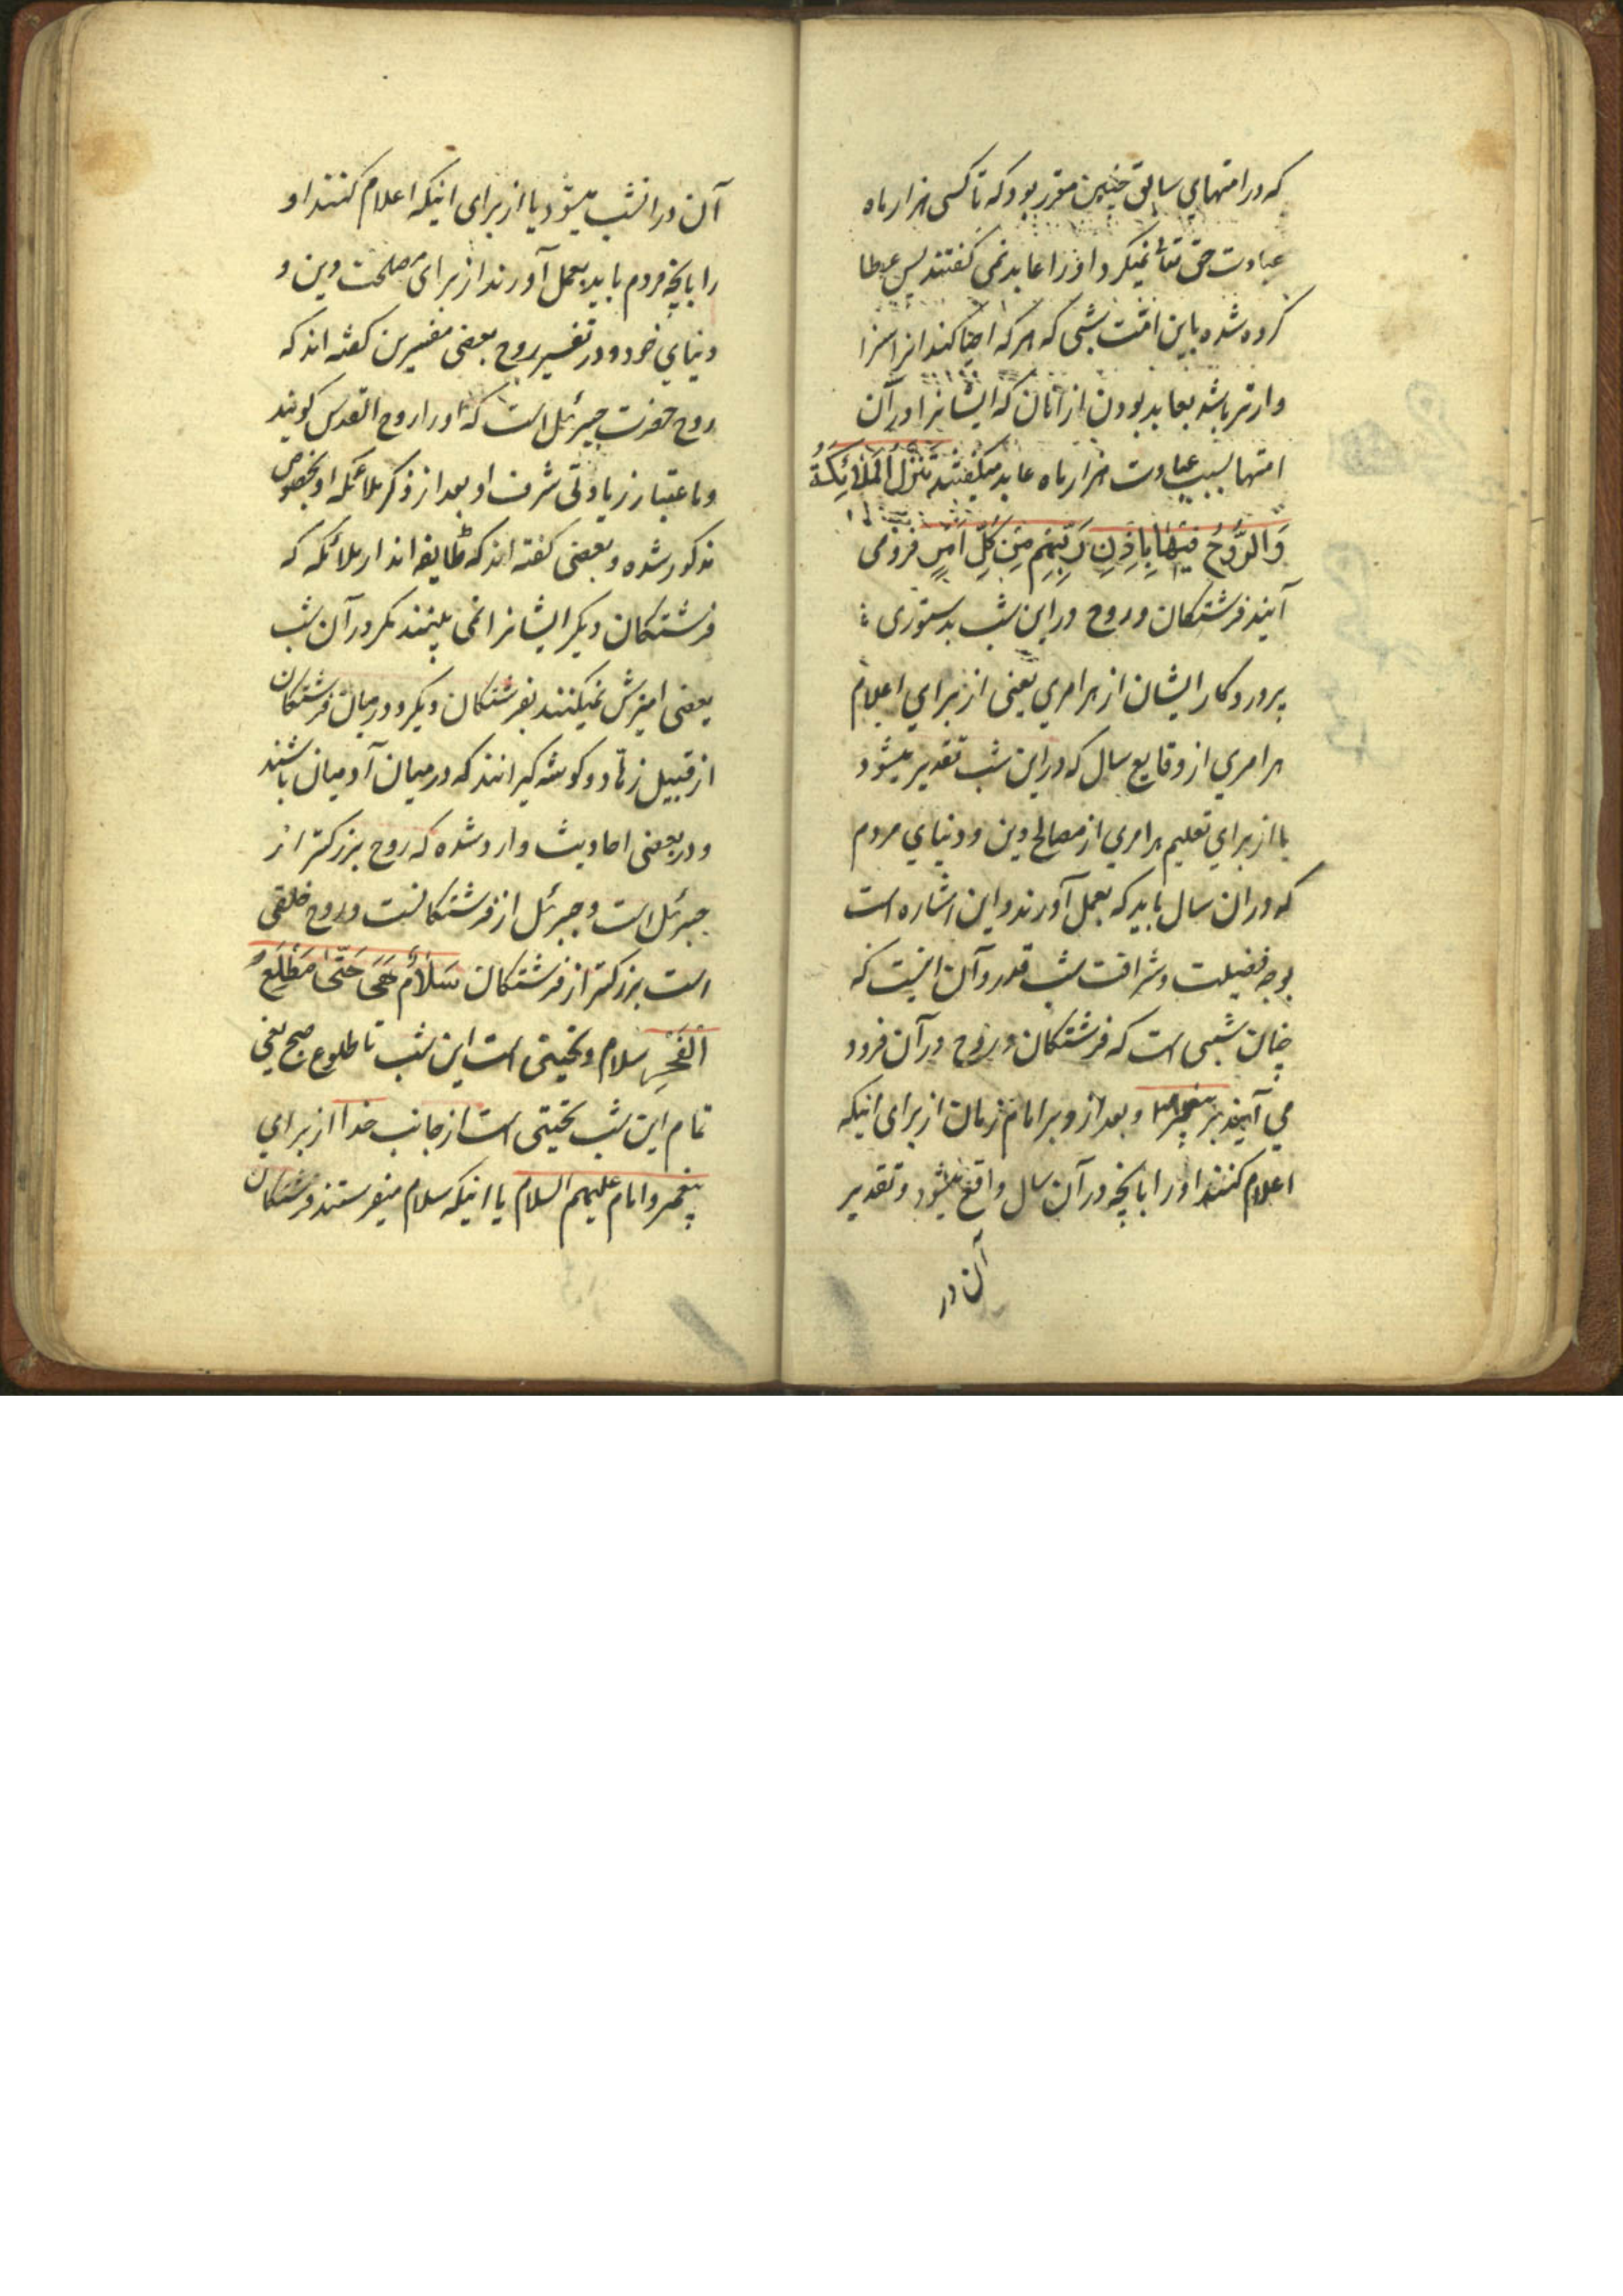 که در امتهای سابق چنین مقرر بود که تا کسی هزار ماه
عبادت حق تعالی نمیکرد او را عابد نمی کفتند پس عطا
کرده شده باین امت شبی که هر که احیا کند انرا سزا
وارتر باشد بعابد بودن از آنان که ایشانرا در آن
امتها بسبب عبادت هزار ماه عابد میکفتند تَنَزَّلُ الْمَلٰائِکَةُ
وَالرُّوحُ فِیهٰا بِاِذْنِ رَبِّهِمْ مِنْ کُلِّ اَمْرٍ فرو می
آیند فرشتکان و روح در این شب بدستوری
پروردکار ایشان از هر امری یعنی از برای اعلام
هر امری از وقایع سال که در این شب تقدیر میشود
یا از برای تعلیم هر امری از مصالح دین و دنیای مردم
که در ان سال باید که بعمل آورند و این اشاره است
بوجه فضیلت و شرافت شب قدر و آن اینست که
چنان شبی است که فرشتکان و روح در آن فرود
می آیند بر پیغمبر ص و بعد از و بر امام زمان از برای اینکه
اعلام کنند او را بانچه در آن سال واقع میشود و تقدیر
آن در
آن در انشب میشود یا از برای اینکه اعلام کنند او
را بانچه مردم باید بعمل آورند از برای مصلحت دین و
دنیای خود و در تفسیر روح بعضی مفسرین کفته اند که
روح حضرت جبرئیل است که او را روح القدس کویند
و باعتبار زیادتی شرف او بعد از ذکر ملائکه او بخصوص
مذکور شده و بعضی کفته اند که طایفه اند از ملائکه که
فرشتکان دیکر ایشانرا نمی بینند مکر در آن شب
یعنی امیزش نمیکنند بفرشتکان دیکر و در میان فرشتکان
از قبیل زهاد و کوشه کیرانند که در میان آدمیان باشند
و در بعضی احادیث وارد شده که روح بزرکتر از
جبرئل است و جبرئل از فرشتکانست و روح خلقی
است بزرکتر از فرشتکان سَلٰامٌ هِیَ حَتّٰی مَطْلَعِ
الْفَجْرِ سلام و تحیتی است این شب تا طلوع صبح یعنی
تمام این شب تحیتی است از جانب خدا از برای
پیغمبر و امام علیهم السلام یا اینکه سلام میفرستند فرشتکان